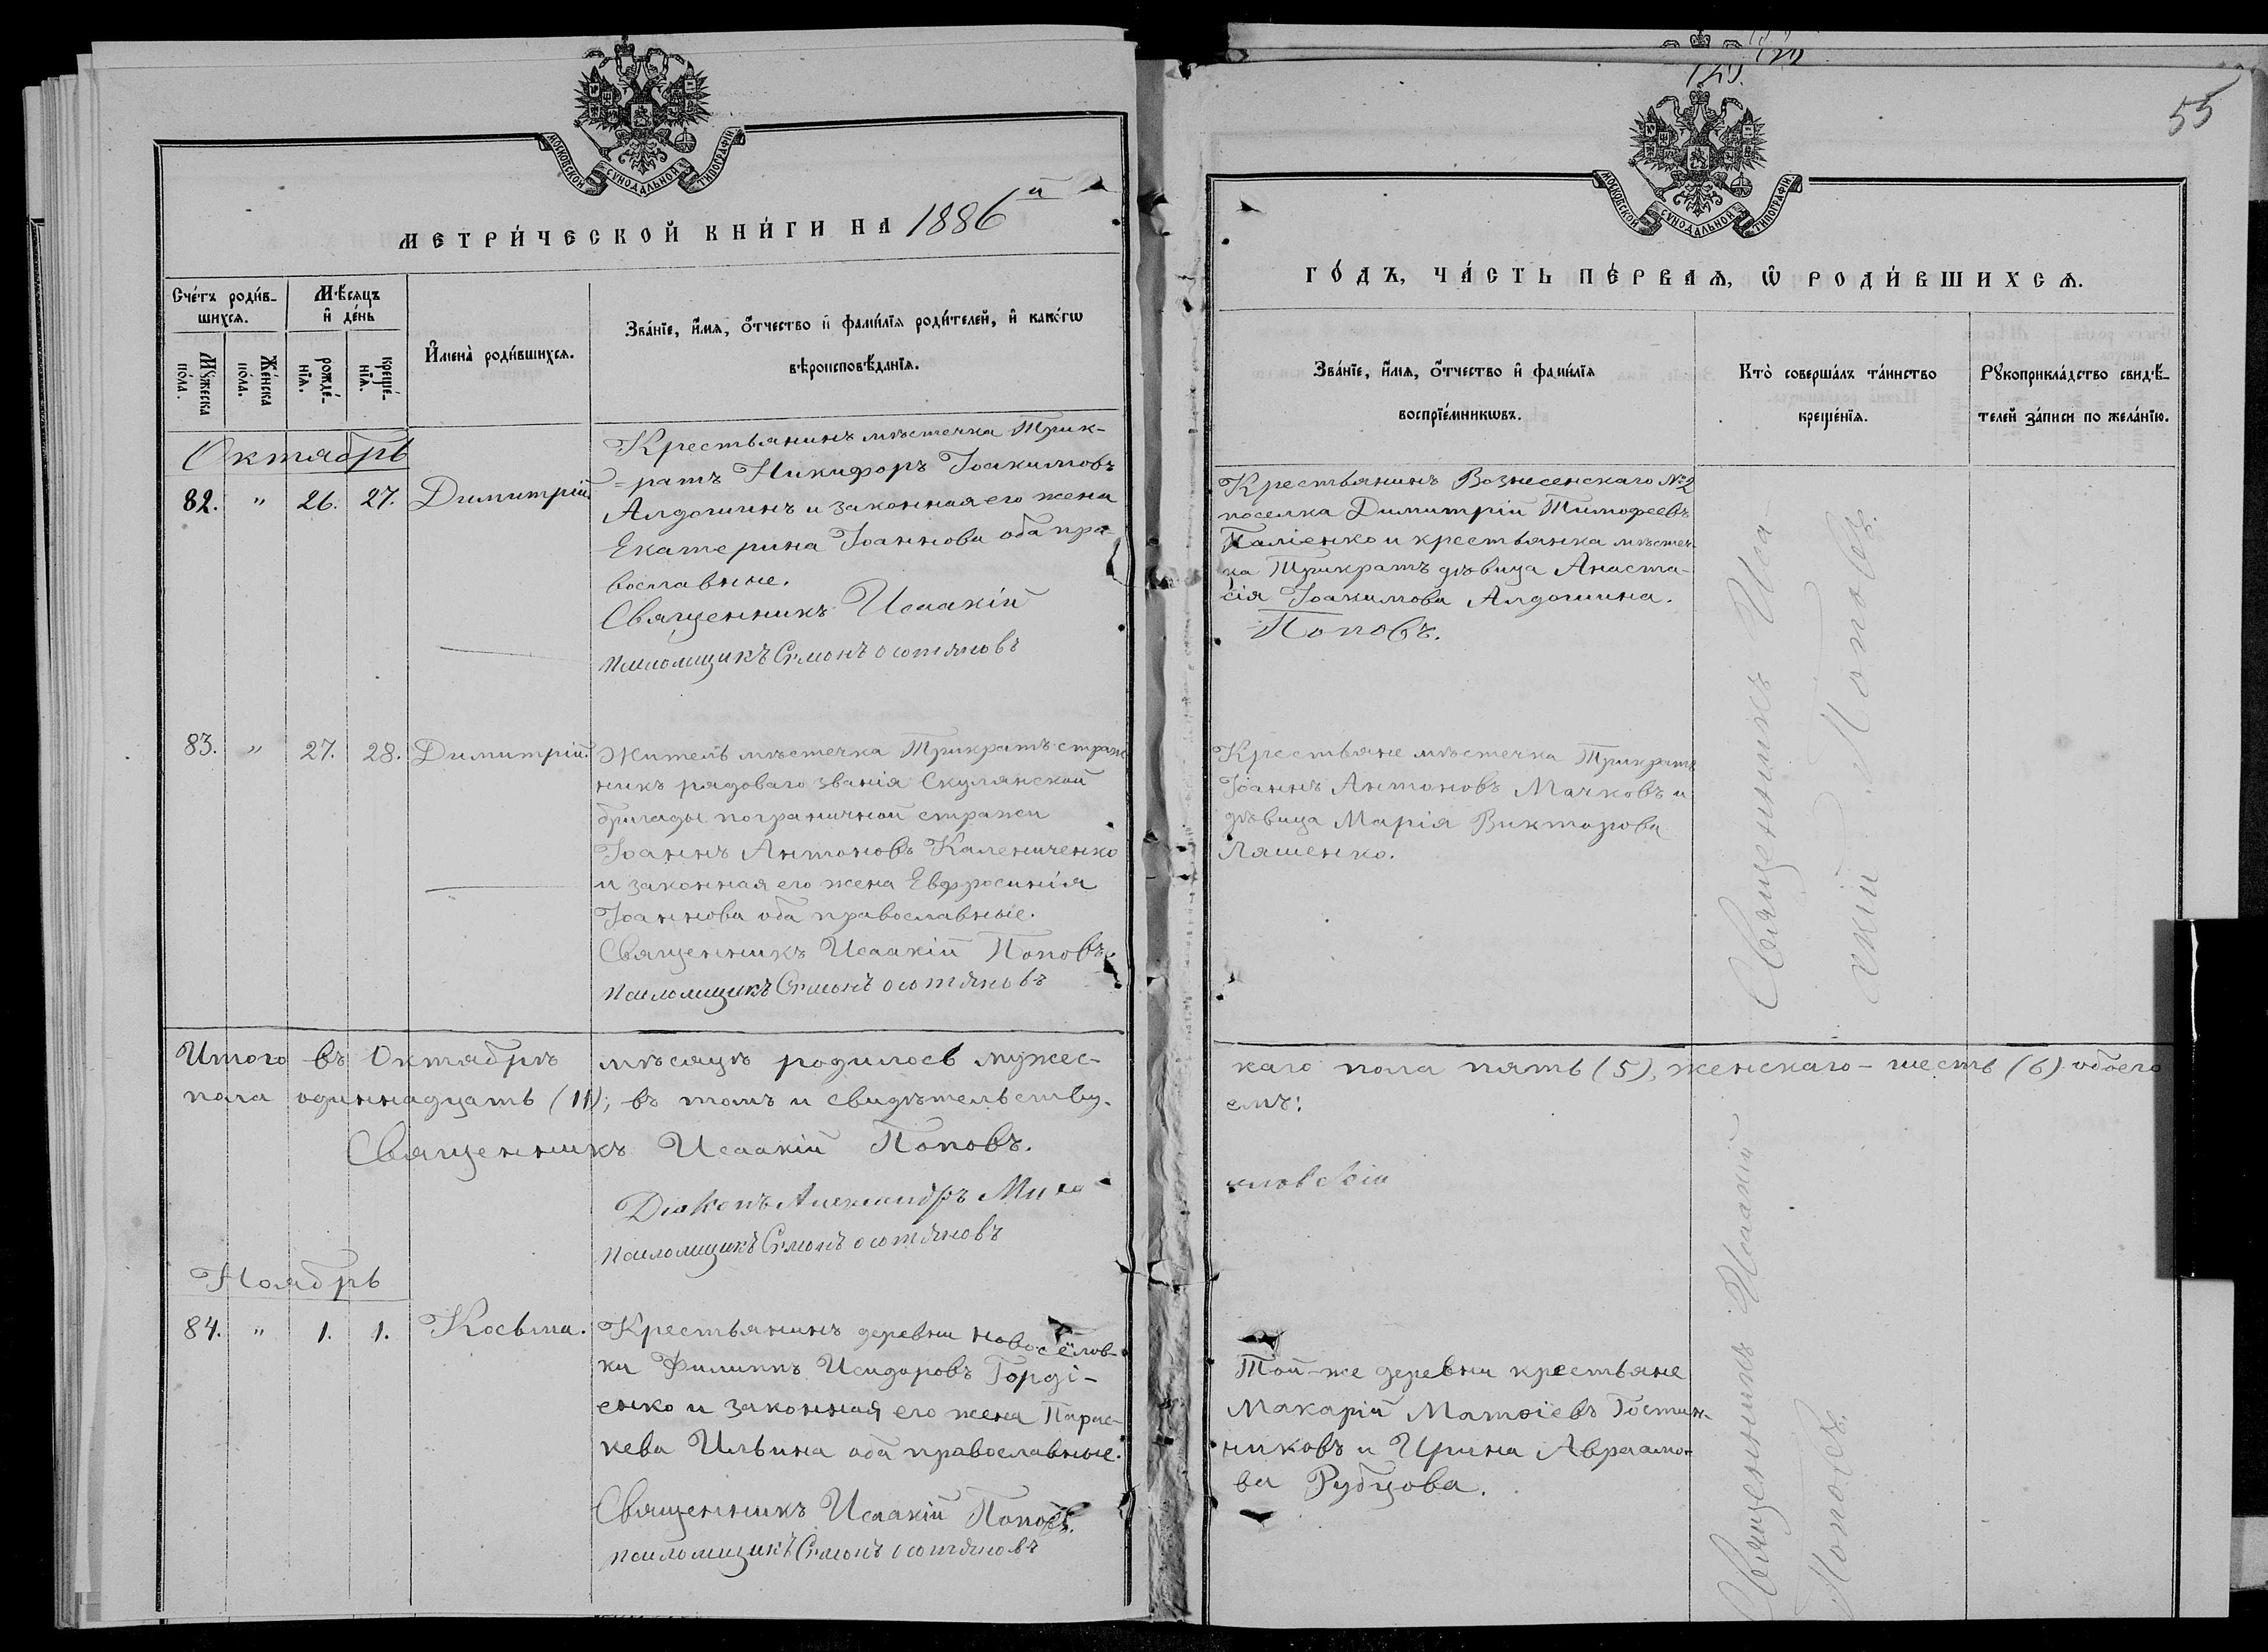 МОСКОВСКОЙ СѴНОДАЛЬНОЙ ТИПОГРАФІИ
МЕТРИ́ЧЕСКОЙ КНИ́ГИ НА 1886й
Сче́тъ роди́в-
шихся.
Мѣ́сяцъ
и҆ де́нь
Мꙋ́жеска
по́ла.
Же́нска
по́ла.
рожде́-
нїя.
креще́-
нїя.
И҆мена̀ роди́вшихся.
Зва́нїе, и҆́мя, ѻ҆́тчество и҆ фами́лїя роди́телей, и҆ како́гѡ
вѣроисповѣ́данїя.
Октябрь
82. " 26. 27. Димитрій
Крестьянинъ мѣстечка Трик-
=ратъ Никифоръ Іоакимовъ
Алдошинъ и законная его жена
Екатерина Іоаннова оба пра-
вославные.
Священникъ Исаакій
псаломщикъ
83. " 27. 28. Димитрій.
Житель мѣстечка Трикратъ страж
никъ рядоваго званія Скулянской
бригады пограничной стражи
Іоаннъ Антоновъ Калениченко
и законная его жена Евфросинія
Іоаннова оба православные.
Священникъ Исаакій Поповъ.
псаломщикъ
Итого въ Октябрѣ мѣсяцѣ родилось мужес-
пола одиннадцать (11); въ томъ и свидѣтельству-
Священникъ Исаакій Поповъ.
Діаконъ Александръ Мило-
псаломщикъ
Ноябрь
84. " 1. 1. Косьма.
Крестьянинъ деревни Новосёлов-
ки Филиппъ Исидоровъ Горді-
енко и законная его жена Парас-
кева Ильина оба православные.
Священникъ Исаакій Поповъ.
псаломщикъ
55
МОСКОВСКОЙ СѴНОДАЛЬНОЙ ТИПОГРАФІИ
ГО́ДЪ, ЧА́СТЬ ПЕ́РВАЯ, Ѡ҆ РОДИ́ВШИХСЯ.
Зва́нїе, и҆́мя, ѻ҆́тчество и҆ фами́лїя
воспрїе́мникѡвъ.
Кто̀ соверша́лъ та́инство
креще́нїя.
Рꙋкоприкла́дство свидѣ́-
телей за́писи по жела́нїю.
Крестьянинъ Вознесенскаго №2
поселка Димитрій Тимофеевъ
Паліенко и крестьянка мѣстеч-
ка Трикратъ дѣвица Анаста-
сія Іоакимова Алдошина.
Поповъ.
Крестьяне мѣстечка Трикратъ
Іоаннъ Антоновъ Мачковъ и
дѣвица Марія Викторова
Ляшенко.
Священникъ Иса-
акій Поповъ.
каго пола пять (5), женскаго - шесть (6) обоего
емъ:
ловскій
Той-же деревни крестьяне
Макарій Матѳіевъ Гостин-
никовъ и Ирина Авраамо-
ва Рубцова.
Священникъ Исаакій
Поповъ.